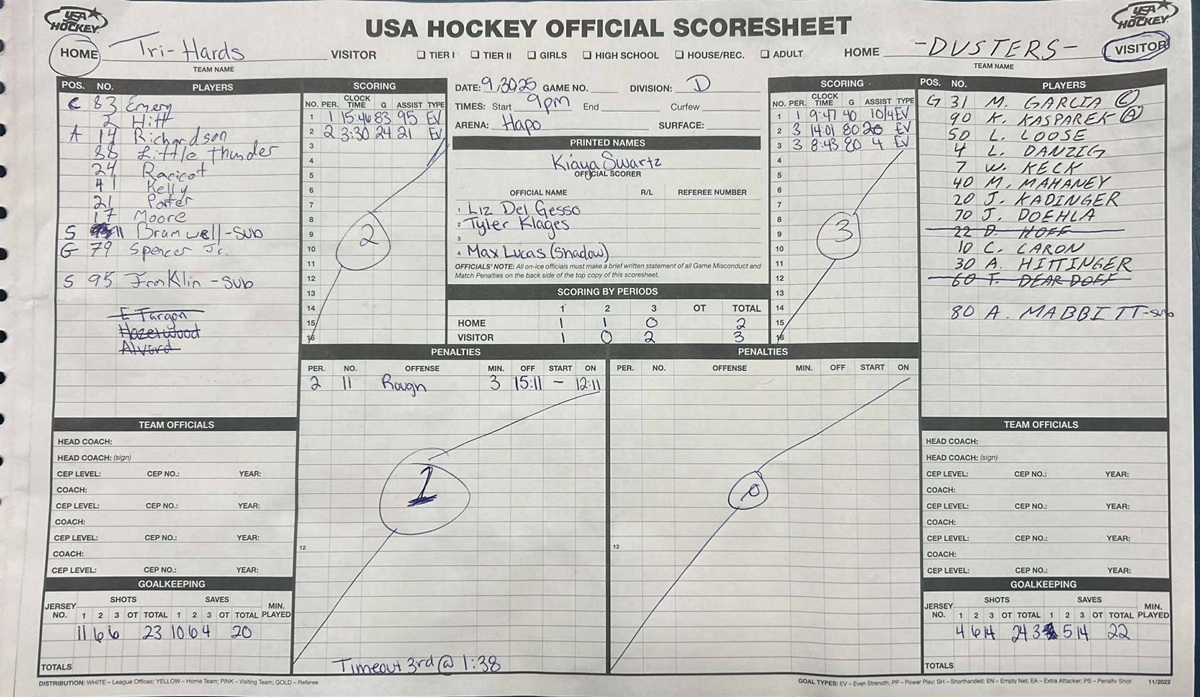 USA HOCKEY OFFICIAL SCORESHEET
USA HOCKEY
USA HOCKEY
HOME Tri-Hards VISITOR ☐ TIER I ☐ TIER II ☐ GIRLS ☐ HIGH SCHOOL ☐ HOUSE/REC. ☐ ADULT HOME -DUSTERS- VISITOR
TEAM NAME
TEAM NAME
POS. NO. PLAYERS
C 83 Emery
2 Hitt
A 14 Richardson
38 Little thunder
24 Racicot
41 Kelly
21 Potter
17 Moore
S 11 Bramwell-Sub
G 79 Spencer Jr.
S 95 Franklin-Sub
E Targon
Hazelwood
Alvord
SCORING
NO. PER. CLOCK TIME G ASSIST TYPE
1 1 15:46 83 95 EV
2 2 3:30 24 21 EV
3
4
5
6
7
8
9
10
11
12
13
14
15
16
2
DATE: 9.30.25 GAME NO. DIVISION: D
TIMES: Start 9pm End Curfew
ARENA: Hapo SURFACE:
PRINTED NAMES
Kiaya Swartz
OFFICIAL SCORER
OFFICIAL NAME R/L REFEREE NUMBER
1 Liz Del Gesso
2 Tyler Klages
3
4 Max Lucas (Shadow)
OFFICIALS' NOTE: All on-ice officials must make a brief written statement of all Game Misconduct and
Match Penalties on the back side of the top copy of this scoresheet.
SCORING BY PERIODS
1 2 3 OT TOTAL
HOME 1 1 0 2
VISITOR 1 0 2 3
SCORING
NO. PER. CLOCK TIME G ASSIST TYPE
1 1 9:47 40 10/4 EV
2 3 14:01 80 20 EV
3 3 8:43 80 4 EV
4
5
6
7
8
9
10
11
12
13
14
15
16
3
POS. NO. PLAYERS
G 31 M. GARCIA C
90 K. KASPAREK A
50 L. LOOSE
4 L. DANZIG
7 W. KECK
40 M. MAHANEY
20 J. KADINGER
70 J. DOEHLA
22 D. HOFF
10 C. CARON
30 A. HITTINGER
60 T. DEARDOFF
80 A. MABBITT-sub
PENALTIES
PER. NO. OFFENSE MIN. OFF START ON
2 11 Rough 3 15:11 - 12:11
1
12
Timeout 3rd @ 1:38
PENALTIES
PER. NO. OFFENSE MIN. OFF START ON
0
12
TEAM OFFICIALS
HEAD COACH:
HEAD COACH: (sign)
CEP LEVEL: CEP NO.: YEAR:
COACH:
CEP LEVEL: CEP NO.: YEAR:
COACH:
CEP LEVEL: CEP NO.: YEAR:
COACH:
CEP LEVEL: CEP NO.: YEAR:
GOALKEEPING
SHOTS SAVES
JERSEY NO. 1 2 3 OT TOTAL 1 2 3 OT TOTAL MIN. PLAYED
11 6 6 23 10 6 4 20
TOTALS
TEAM OFFICIALS
HEAD COACH:
HEAD COACH: (sign)
CEP LEVEL: CEP NO.: YEAR:
COACH:
CEP LEVEL: CEP NO.: YEAR:
COACH:
CEP LEVEL: CEP NO.: YEAR:
COACH:
CEP LEVEL: CEP NO.: YEAR:
GOALKEEPING
SHOTS SAVES
JERSEY NO. 1 2 3 OT TOTAL 1 2 3 OT TOTAL MIN. PLAYED
4 6 14 24 3 5 14 22
TOTALS
DISTRIBUTION: WHITE – League Offices; YELLOW – Home Team; PINK – Visiting Team; GOLD – Referee
GOAL TYPES: EV – Even Strength; PP – Power Play; SH – Shorthanded; EN – Empty Net; EA – Extra Attacker; PS – Penalty Shot 11/2022